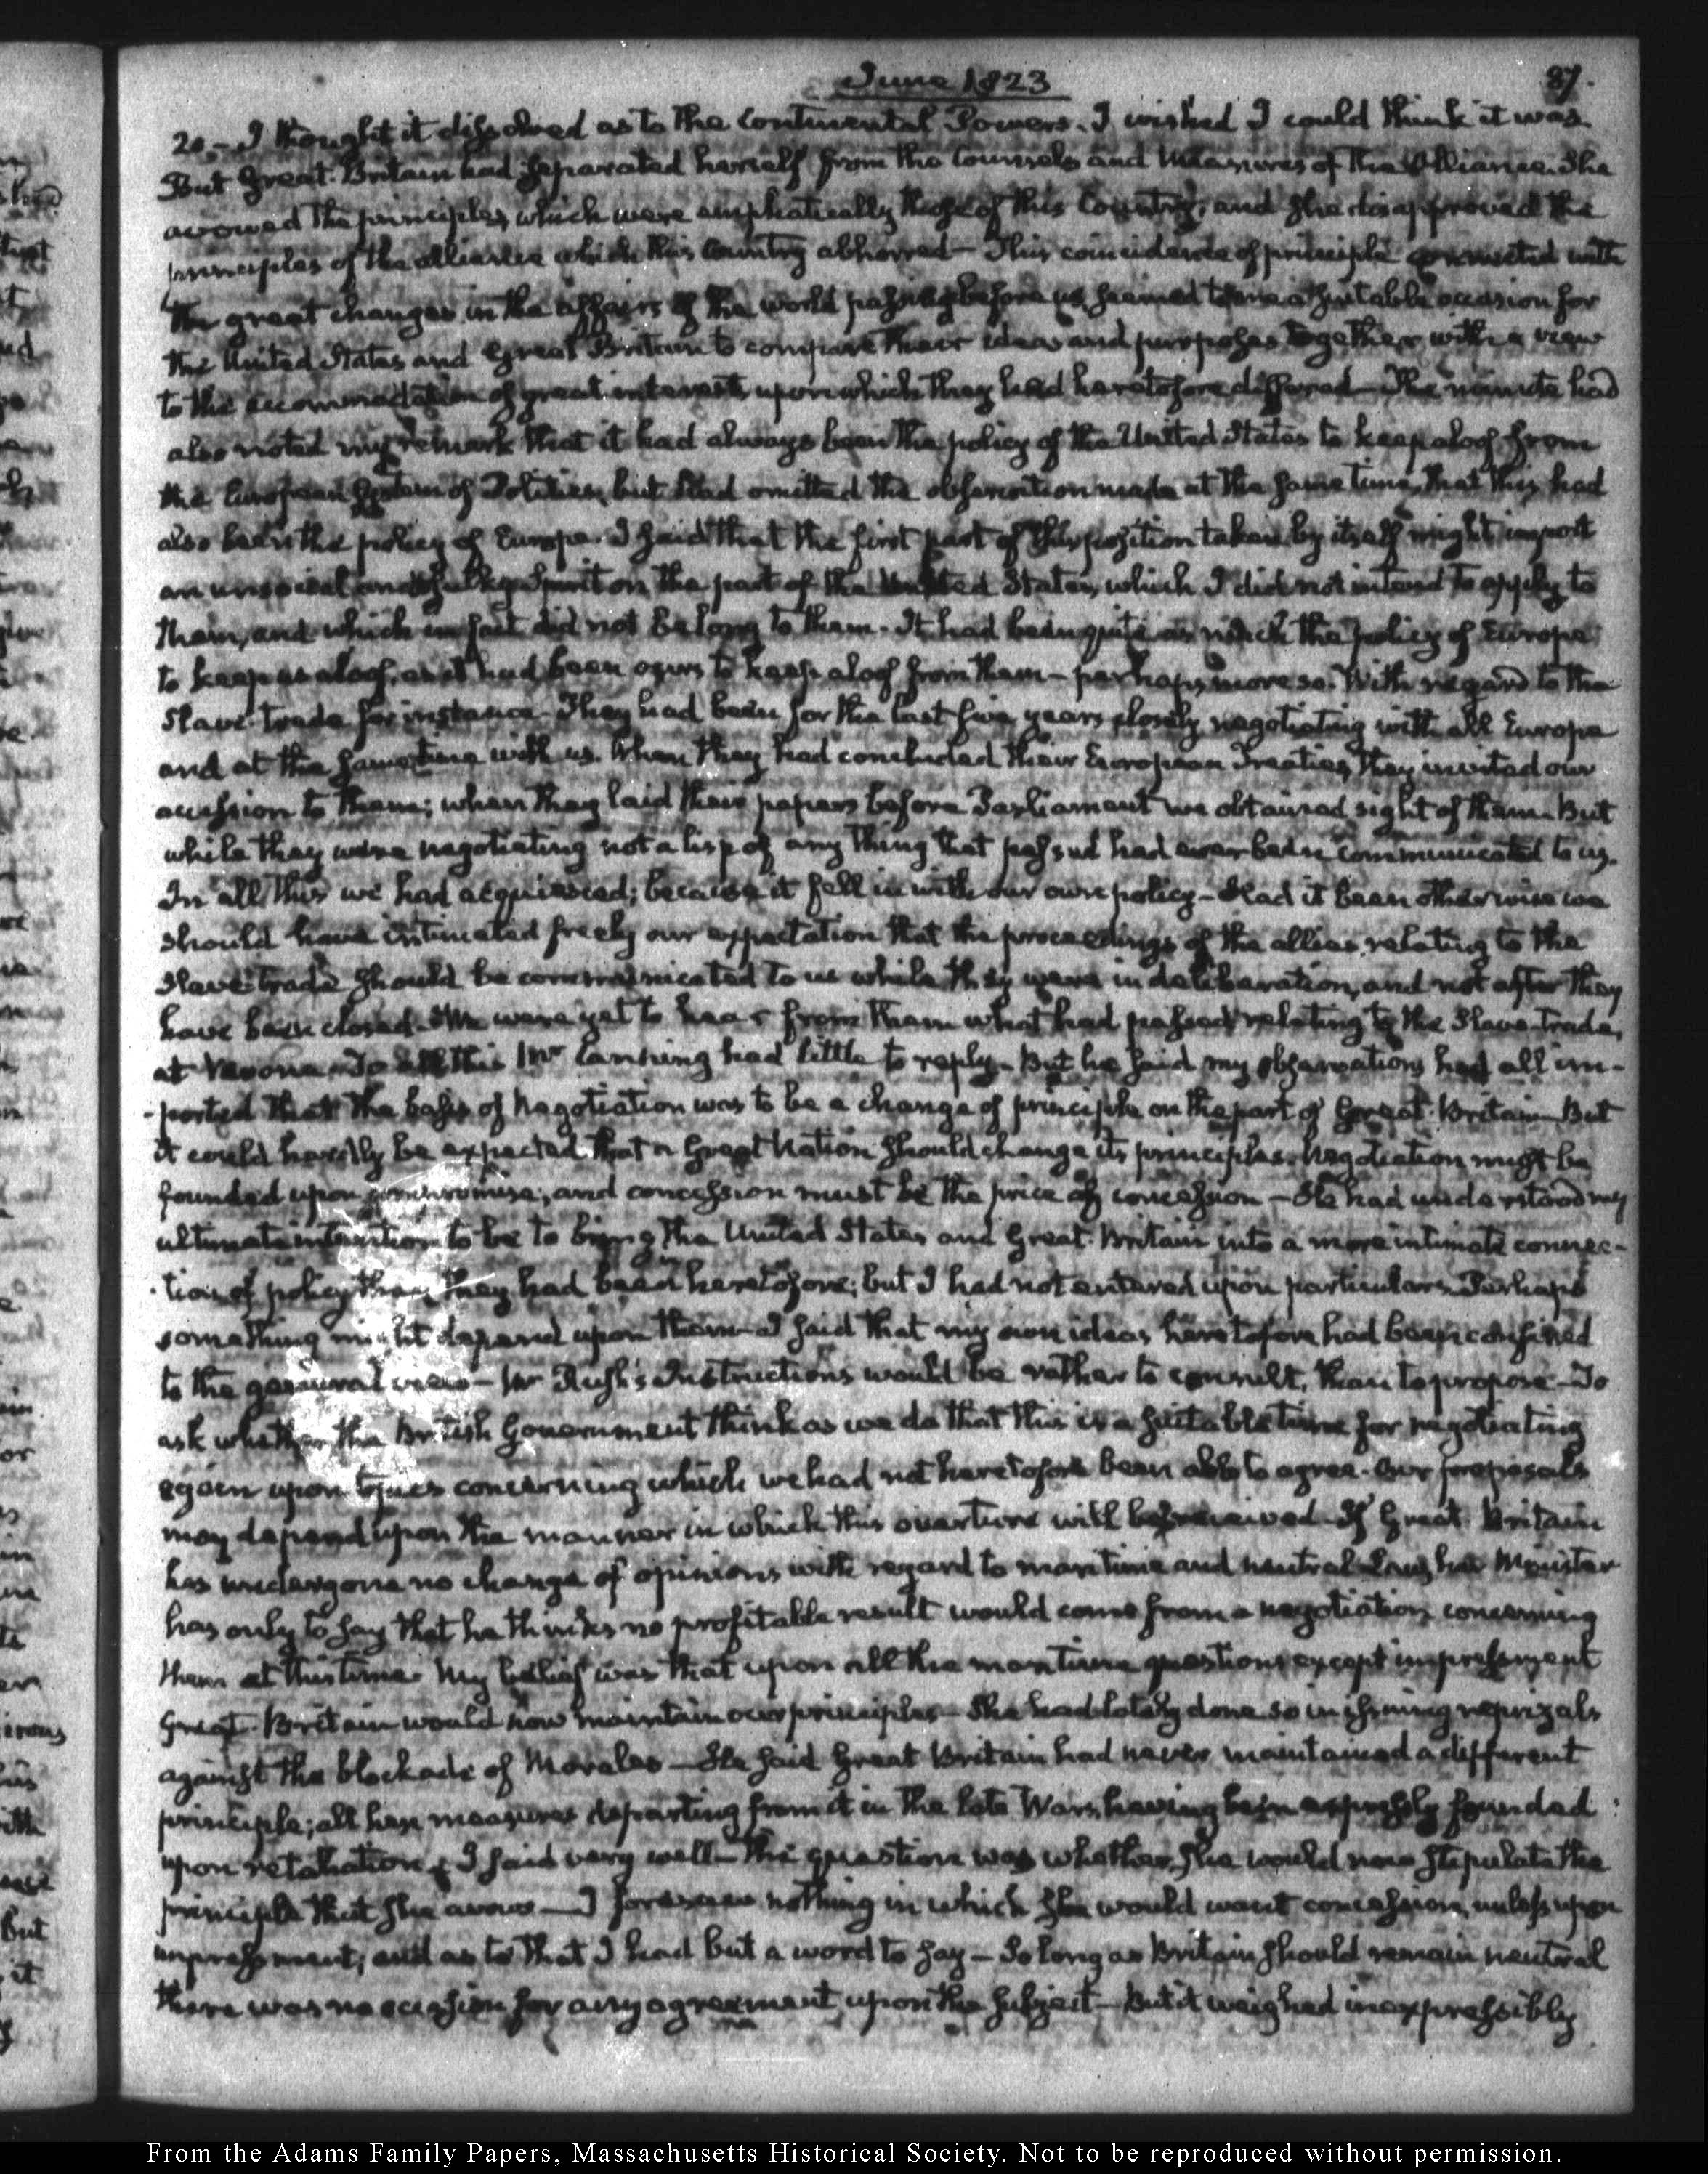 June 1823
87.
20.— I thought it dissolved as to the Continental Powers. I wished I could think it was.
But Great-Britain had separated herself from the Counsels and Measures of the Alliance. She
avowed the principles which were emphatically those of this Country, and she disapproved the
principles of the alliance which this Country abhorred— This coincidence of principle connected with
the great changes in the affairs of the world passing before us seemed to me a suitable occasion for
the United States and Great Britain to compare their ideas and purposes together with a view
to the accommodation of great interests upon which they had heretofore differed— The minute had
also noted my remark that it had always been the policy of the United States to keep aloof from
the European System of Politics, but had omitted the observation made at the same time, that this had
also been the policy of Europe. I said that the first part of this position taken by itself might import
an unsocial and sulky spirit on the part of the United States, which I did not intend to apply to
them, and which in fact did not belong to them. It had been quite as much the policy of Europe
to keep us aloof, as it had been ours to keep aloof from them— perhaps more so. With regard to the
Slave-trade for instance. They had been for the last five years closely negotiating with all Europe
and at the same time with us. When they had concluded their European Treaties they invited our
accession to them; when they laid their papers before Parliament we obtained sight of them. But
while they were negotiating not a lisp of any thing that passed had ever been communicated to us.
In all this we had acquiesced; because it fell in with our own policy— Had it been otherwise we
should have intimated freely our expectation that the proceedings of the allies relating to the
Slave-trade should be communicated to us while they were in deliberation, and not after they
have been closed. We were yet to hear from them what had passed relating to the Slave-trade,
at Verona. To all this Mr Canning had little to reply. But he said my observations had all im-
-ported that the basis of negotiation was to be a change of principle on the part of Great-Britain— But
it could hardly be expected that a Great Nation should change its principles. Negotiation might be
founded upon compromise, and concession must be the price of concession— He had understood my
ultimate intention to be to bring the United States and Great-Britain into a more intimate connec-
-tion of policy than they had been heretofore; but I had not entered upon particulars. Perhaps
something might depend upon them— I said that my own ideas heretofore had been confined
to the general view— Mr Rush's Instructions would be rather to consult, than to propose— To
ask whether the British Government think as we do that this is a suitable time for negotiating
again upon topics concerning which we had not heretofore been able to agree. Our proposals
may depend upon the manner in which this overture will be received— If Great-Britain
has undergone no change of opinions with regard to maritime and neutral Laws, her Minister
has only to say that he thinks no profitable result would come from a negotiation concerning
them at this time. My belief was that upon all the maritime questions except impressment
Great-Britain would now maintain our principles— She had lately done so in issuing reprizals
against the blockade of Morales— He said Great Britain had never maintained a different
principle; all her measures departing from it in the late Wars, having been expressly founded
upon retaliation. I said very well— the question was whether she would now stipulate the
principle that she avows— I foresaw nothing in which she would want concession, unless upon
impressment; and as to that I had but a word to say— So long as Britain should remain neutral
there was no occasion for any agreement upon the subject— But it weighed inexpressibly
From the Adams Family Papers, Massachusetts Historical Society. Not to be reproduced without permission.